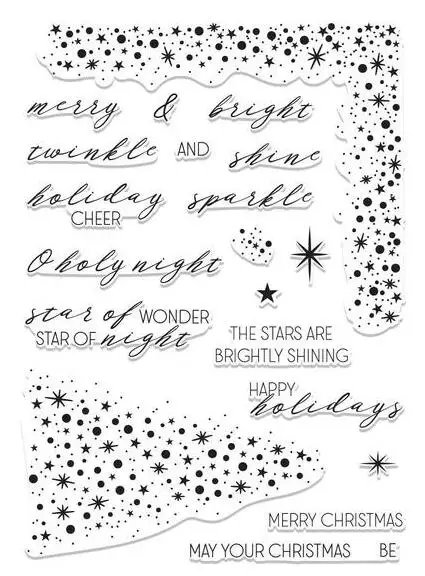 merry & bright
twinkle AND shine
holiday sparkle
CHEER
O holy night
star of WONDER
STAR OF night
THE STARS ARE
BRIGHTLY SHINING
HAPPY
holidays
MERRY CHRISTMAS
MAY YOUR CHRISTMAS BE